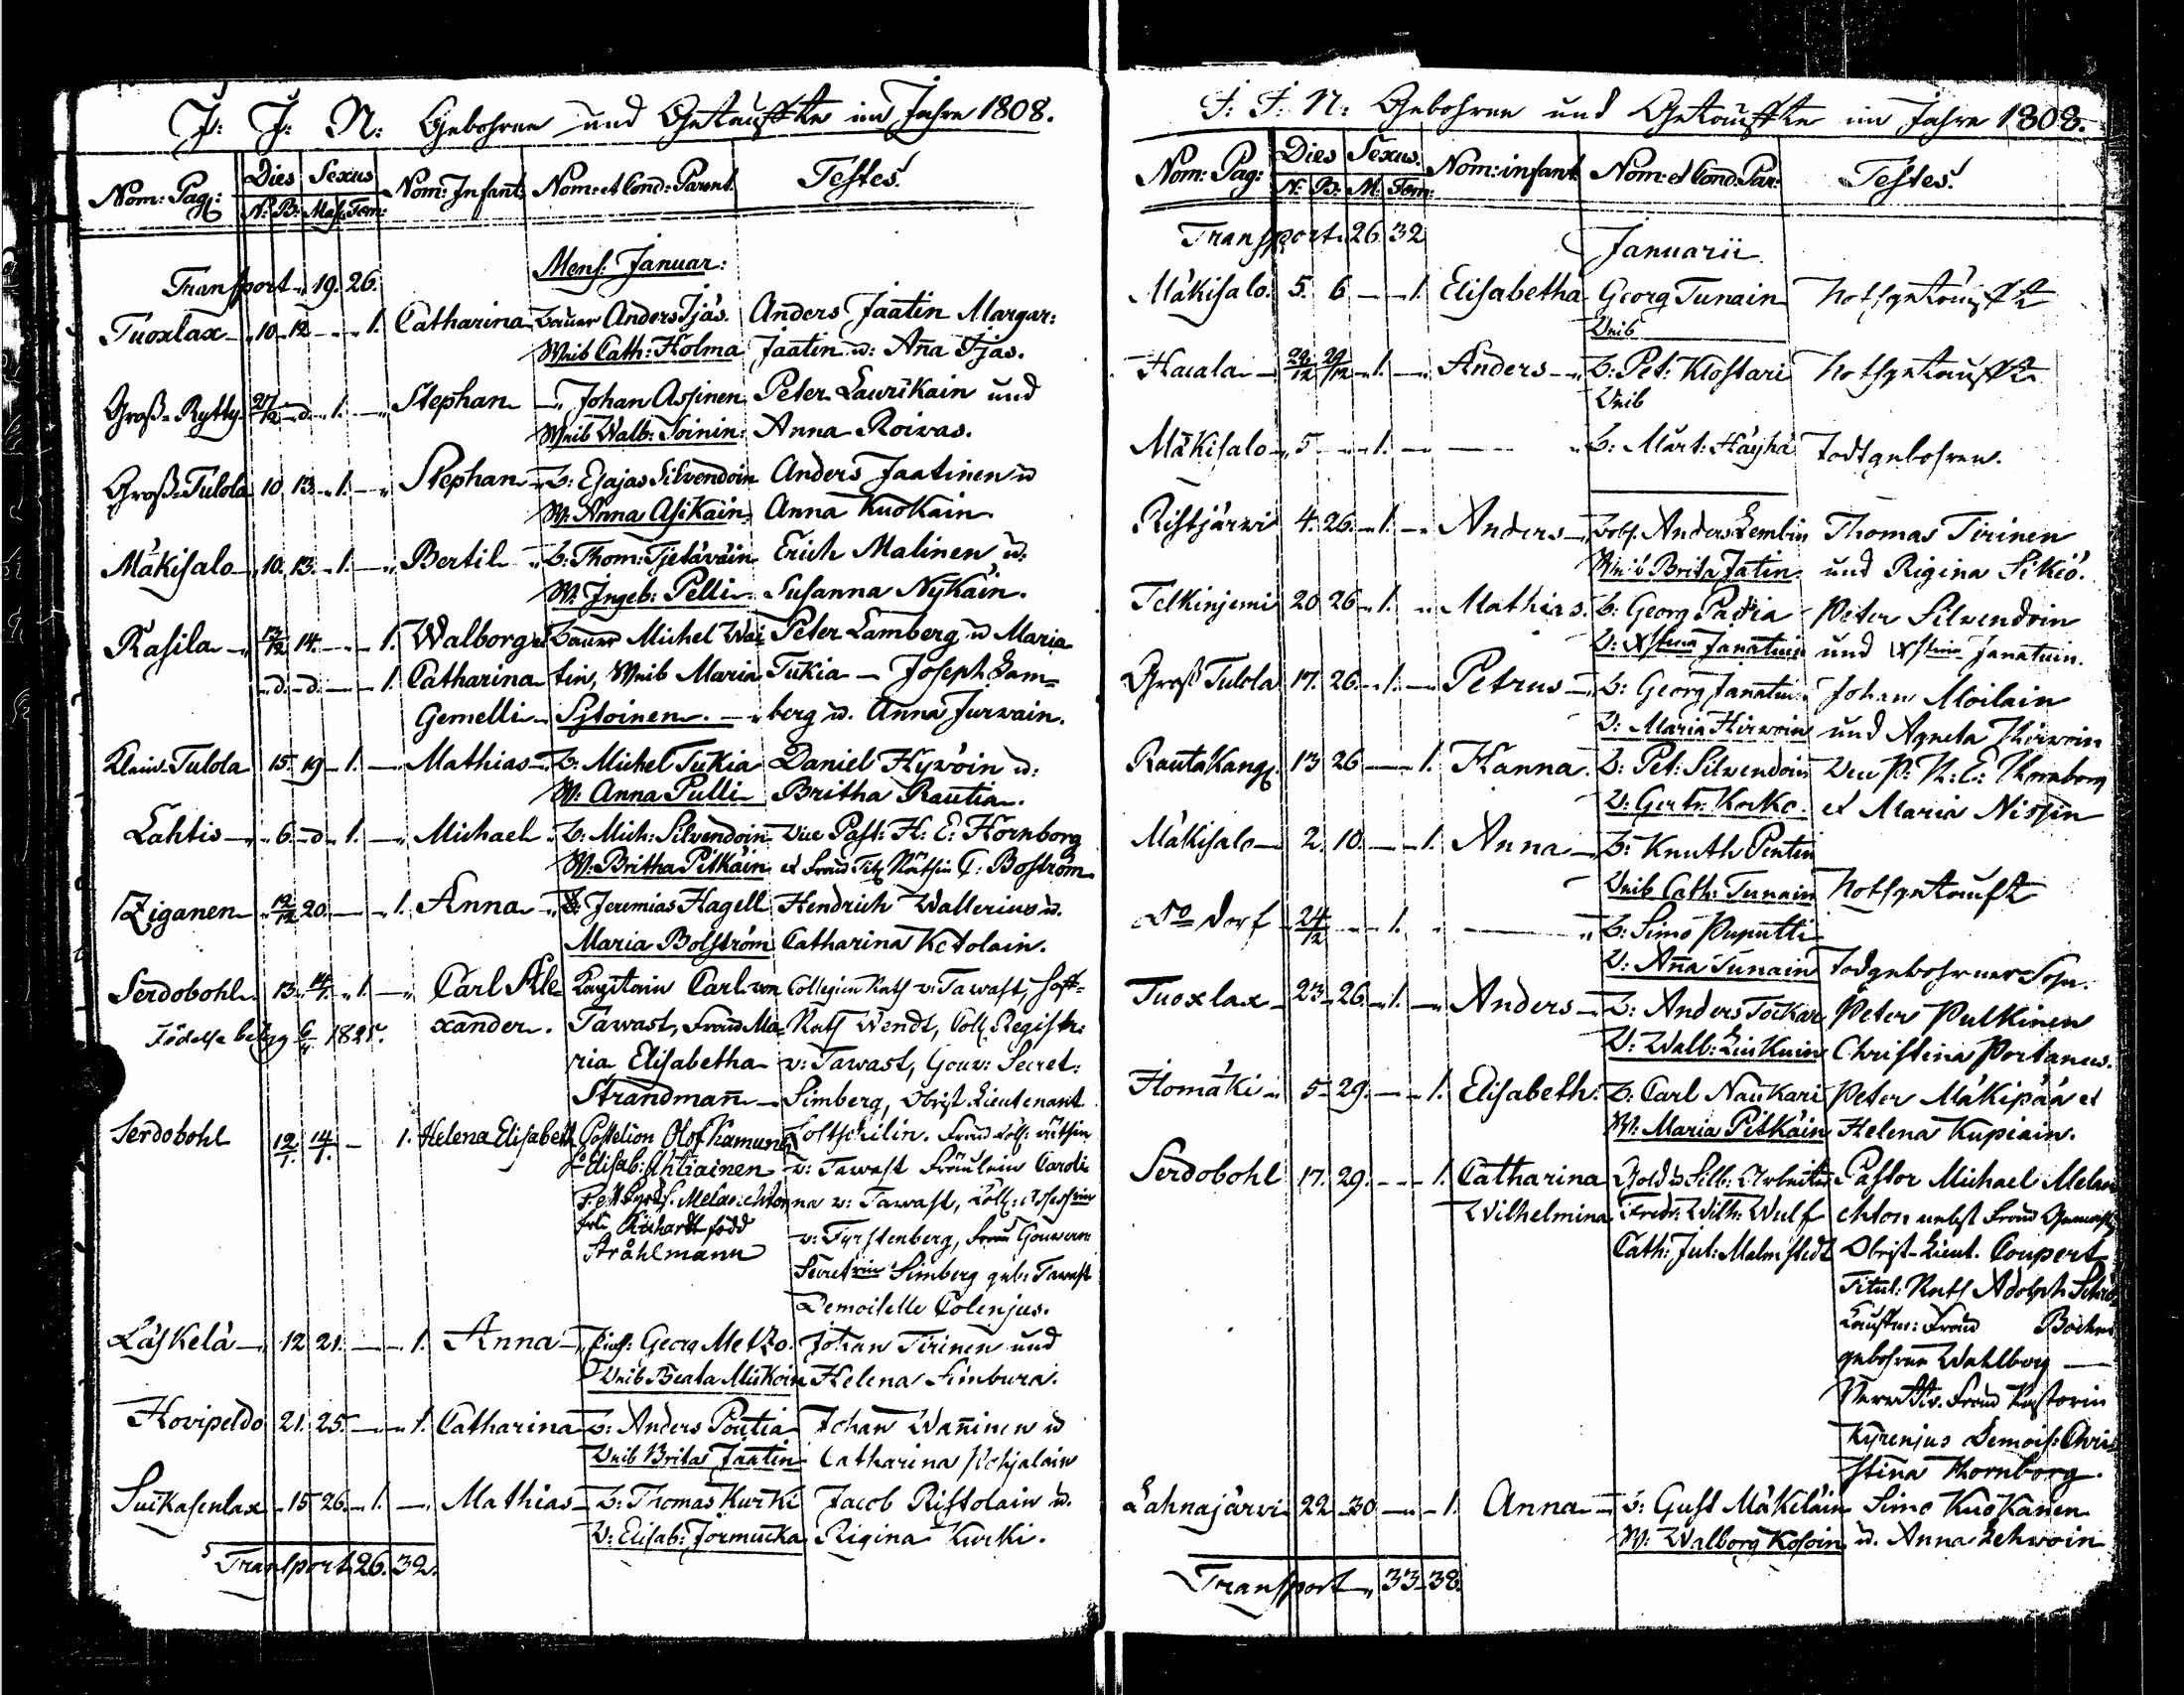 J: J: N: Gebohrne und Getauffte im Jahre 1808.
Nom: Pag: Dies Sexus Nom: Infant: Nom: et Cond: Parent. Testes.
N: B: Mas. Fem:
Mens: Januar:
Transport 19. 26.
Tuoxlax 10 12 1. Catharina Bauer Anders Ijäs. Anders Jaatin Margar:
Weib Cath: Holma Jaatin u: Aña Ijäs.
Groß-Rytty 27/12 d. 1. Stephan Johan Assinen Peter Laurikain und
Weib Walb: Toinin: Anna Roiwas.
Groß-Tulola 10 13 1. Stephan B: Esajas Silvendoin Anders Jaatinen u
W: Anna Asikain. Anna Kuokain.
Mäkisalo 10. 13. 1. Bertil B: Thom: Tjetäväin Erich Malinen u:
W: Ingeb: Pelli Susanna Nykäin.
Rasila 13/12 14. 1. Walborg et Bauer Michel Wai Peter Lamberg u Maria
d. d. 1. Catharina tin, Weib Maria Tukia — Joseph Lam=
Gemelli Sytoinen. berg u. Anna Jurwain.
Klein-Tulola 15. 19 1. Mathias B: Michel Tukia Daniel Hywöin u:
W: Anna Pulli Britha Rautia.
Lahtis 6. d 1. Michael B: Mich: Silvendoin Vice Past: H: E: Hornborg
W: Britha Pitkäin et Frau Tit Räthin C: Boström
Ziganen 12/12 20. 1. Anna Jeremias Hagell Hendrich Wallerius u.
Maria Bolström Catharina Ketolain.
Serdobohl 13. 14/1. 1. Carl Ale Capitain Carl von Collegien Rath v: Tawast, Hoff=
Födelse betyg 6/4 1825. xander. Tawast, Frau Ma Rath Wendt, Coll Registr:
ria Elisabetha v: Tawast, Gouv: Secret:
Strandmañ Simberg, Obrist Lieutenant
Serdobohl 12/1. 14/1. 1. Helena Elisabeth Frau Coll: räthin
Elisab: Ahtiainen v: Tawast Fräulein Caroli
na v: Tawast,
v: Fyrstenberg, Frau Gouvern:
Stråhlmann Secretrin Simberg geb: Tawast
Demoiselle Colenjus.
Läskelä 12 21. 1. Anna Georg Metzo. Johan Tirinen und
Weib Beata Miikoin Helena Simbura.
Hovipeldo 21. 25. 1. Catharina B: Anders Poutia Johan Wañinen u
Weib Britas Jaatin Catharina Pohjalain
Suikasenlax 15 26. 1. Mathias B: Thomas Kurki Jacob Ristolain u.
W: Elisab: Jormucka Rigina Kurki.
Transport 26. 32.
J: J: N: Gebohrne und Getauffte im Jahre 1808.
Nom: Pag: Dies Sexus. Nom: infant Nom: et Cond: Par: Testes.
N: B: M: Fem:
Transport 26 32
Januarii
Mäkisalo. 5. 6 1. Elisabetha Georg Tunain Nothgetauffte
Weib
Haiala 29/12 29/12 1. Anders B: Pet: Klostari Nothgetauffte
Weib
Mäkisalo 5 1. B: Märt: Häyhä Todtgebohren.
Ristjärwi 4. 26. 1. Anders Anders Lembin Thomas Tirinen
Weib Brita Jatin. und Rigina Sikiö.
Telkinjemi 20 26 1. Mathias. B: Georg Padia Peter Silvendoin
W: Xstina Janatuin und Xstina Janatuin.
Groß Tulola 17. 26. 1. Petrus B: Georg Janatuin Johan Moilain
W: Maria Hirwoin und Agneta Hirwoin
Rautakang. 13 26 1. Hanna. B: Pet: Silvendoin Vice P: H: E: Hornborg
W: Gertr: Korko. et Maria Nissin
Mäkisalo 2. 10. 1. Anna B: Knuth Pentin
Weib Cath: Tunain Nothgetauft
Do Dorf 24/12 1. B: Simo Puputti
W: Aña Tunain Todgebohrner Sohn.
Tuoxlax 23 26. 1. Anders B: Anders Tockar Peter Pulkinen
W: Walb: Liukuin Christina Portanus.
Homäki 5 29. 1. Elisabeth. B: Carl Naukari Peter Mäkipää et
W: Maria Pitkäin Helena Kupiain.
Serdobohl 17. 29. 1. Catharina Gold u Silb: Arbeiter Pastor Michael Melan
Wilhelmina Fredr: Wilh: Wulf chton nebst Frau Gemahl
Cath: Jul: Malmstedt Obrist-Lieut. Coupert
Titul: Rath Adolph
Frau
gebohrne Wahlberg
Frau Pastorin
Kyrenjus Demois: Chri
stina Hornborg.
Lahnajärwi 22 30 1. Anna B: Gust Mäkiläin Simo Kuokanen
W: Walborg Kosoin u. Anna Lehwoin
Transport 33 38.